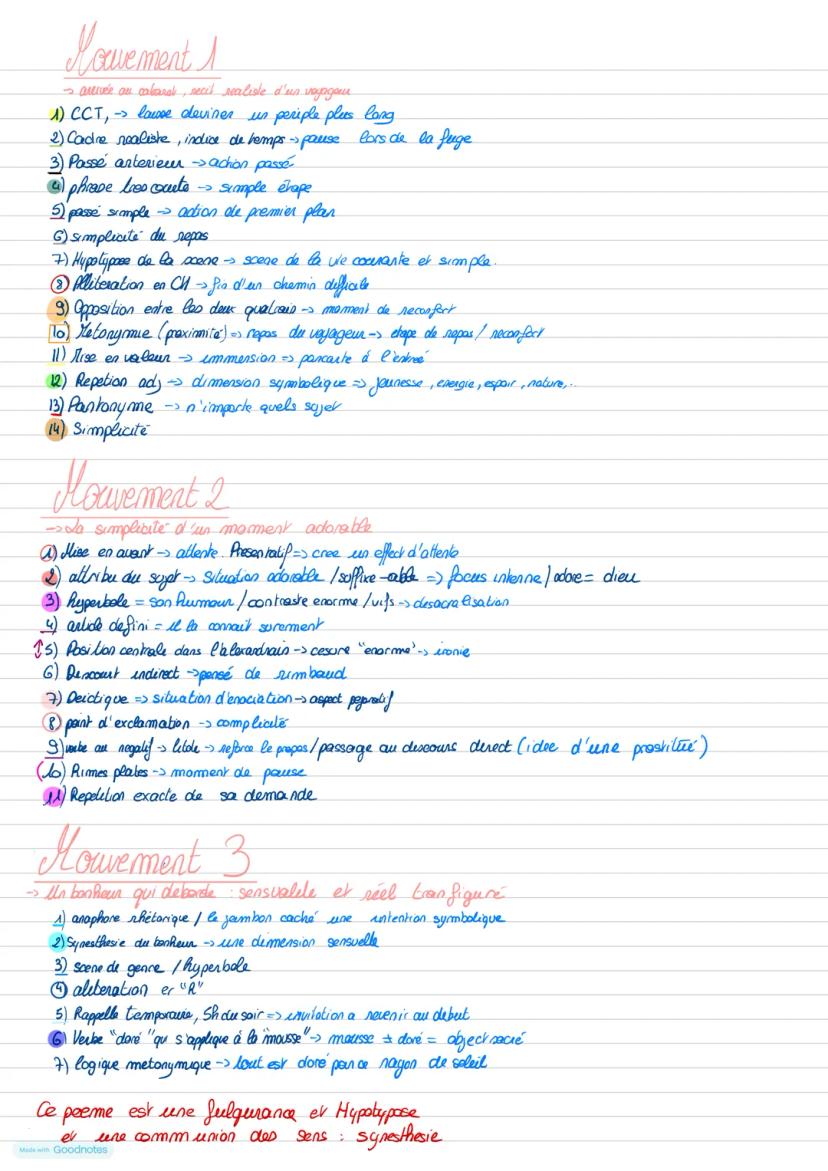 Mouvement 1
-> arrivée au cabaret, recit realiste d'un voyageur
1) CCT, -> laisse deviner un periple plus long
2) Cadre realiste, indice de temps -> pause lors de la fuge
3) Passé anterieur -> action passé
4) phrase tres courte -> simple étape
5) passé simple -> action de premier plan
6) simplicité du repas
7) Hypotypose de la scene -> scene de la vie courante et simple.
8) Alliteration en CH -> fin d'un chemin difficile
9) Opposition entre les deux quatrais -> moment de reconfort
10) Metonymie (proximité) => repas du voyageur -> etape de repas / reconfort
11) Mise en valeur -> immension => pancarte à l'entré
12) Repetion adj -> dimension symbolique => jeunesse, energie, espoir, nature,..
13) Pantonyme -> n'importe quels sujet
14) Simplicité
Mouvement 2
-> La simplicité d'un moment adorable
1) Mise en avant -> attente. Presentatif => cree un effect d'attente
2) attribu du sujet -> Situation adorable / soffixe -able => focus interne / adore = dieu
3) hyperbole = son humour / contraste enorme / vifs -> desacralisation
4) article defini = il la connait surement
↑5) Position centrale dans l'alexandrain -> cesure "enorme" -> ironie
6) Descourt indirect -> pensé de rimbaud
7) Deictique => situation d'enociation -> aspect pejoratif
8) point d'exclamation -> complicité
9) verbe au negatif -> litote -> reforce le propos / passage au descours direct (idee d'une prostitué)
(10) Rimes plates -> moment de pause
11) Repetition exacte de sa demande
Mouvement 3
-> Un bonheur qui deborde : sensualele et réel transfiguré
1) anaphore rhétorique / le jambon caché une intention symbolique
2) Synesthesie du bonheur -> une dimension sensuelle
3) scene de genre / hyperbole
4) aliteration er "R"
5) Rappelle temporaire, 5h du soir => invitation a revenir au debut
6) Verbe "doré" qui s'applique à la "mousse" -> mousse + doré = object sacré
7) logique metonymique -> tout est doré par ce rayon de soleil
Ce poeme est une fulgurance et Hypotypose
et une communion des sens : synesthesie
Made with Goodnotes